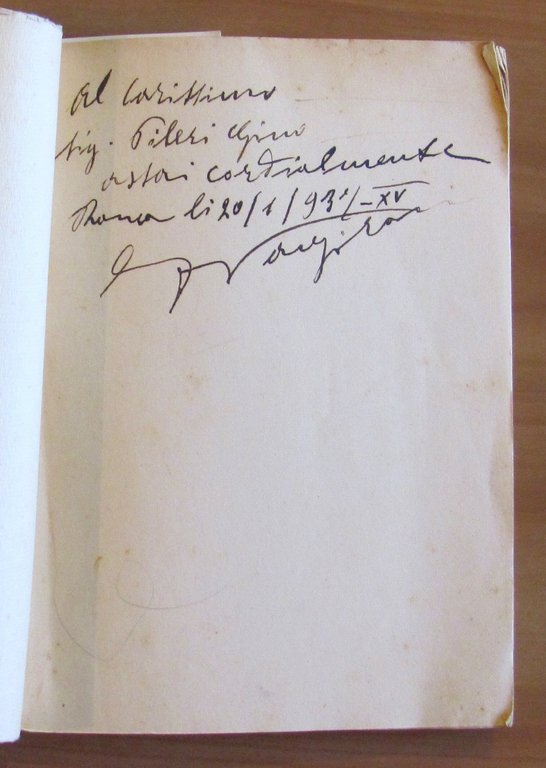 Al Carissimo
Sig. Pileri Gino
assai cordialmente
Roma li 20/1/937-XV